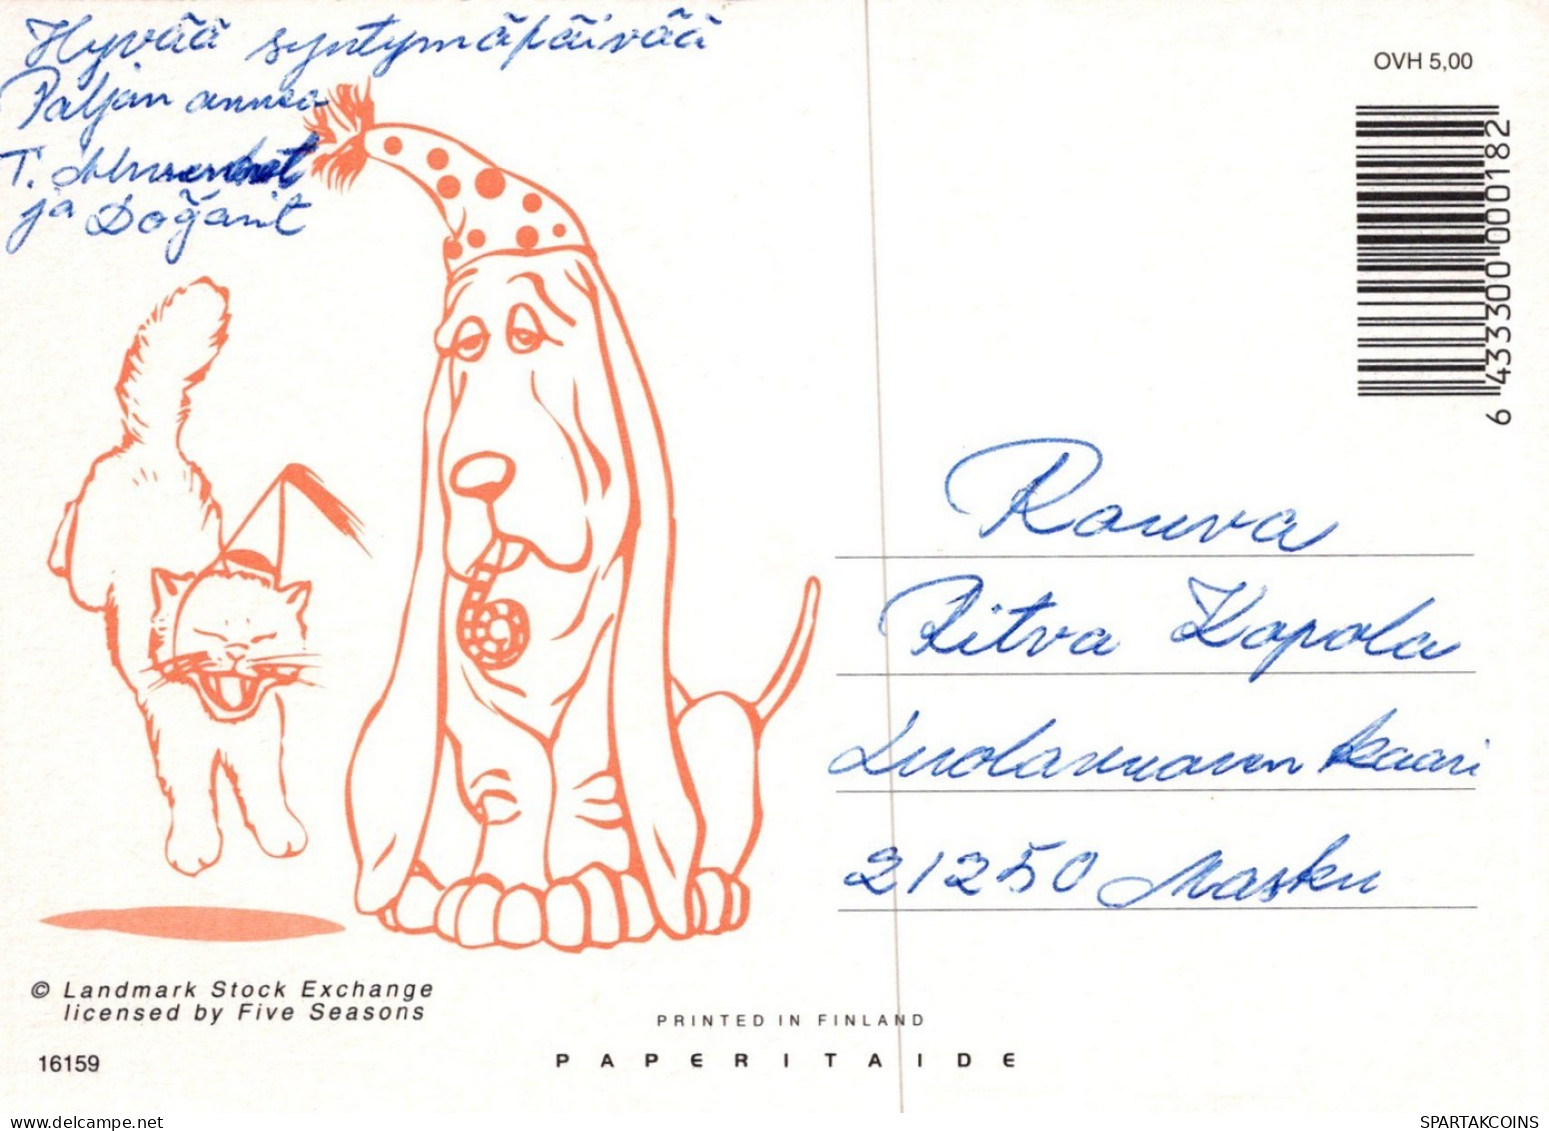 Hyvää syntymäpäivää
Paljon onnea
T.
ja
OVH 5,00
6 433300 000182
Rouva
Ritva Kopola
kaari
21250 Masku
© Landmark Stock Exchange
licensed by Five Seasons
PRINTED IN FINLAND
16159
PAPERITAIDE
SPARTAKCOINS
delcampe.net